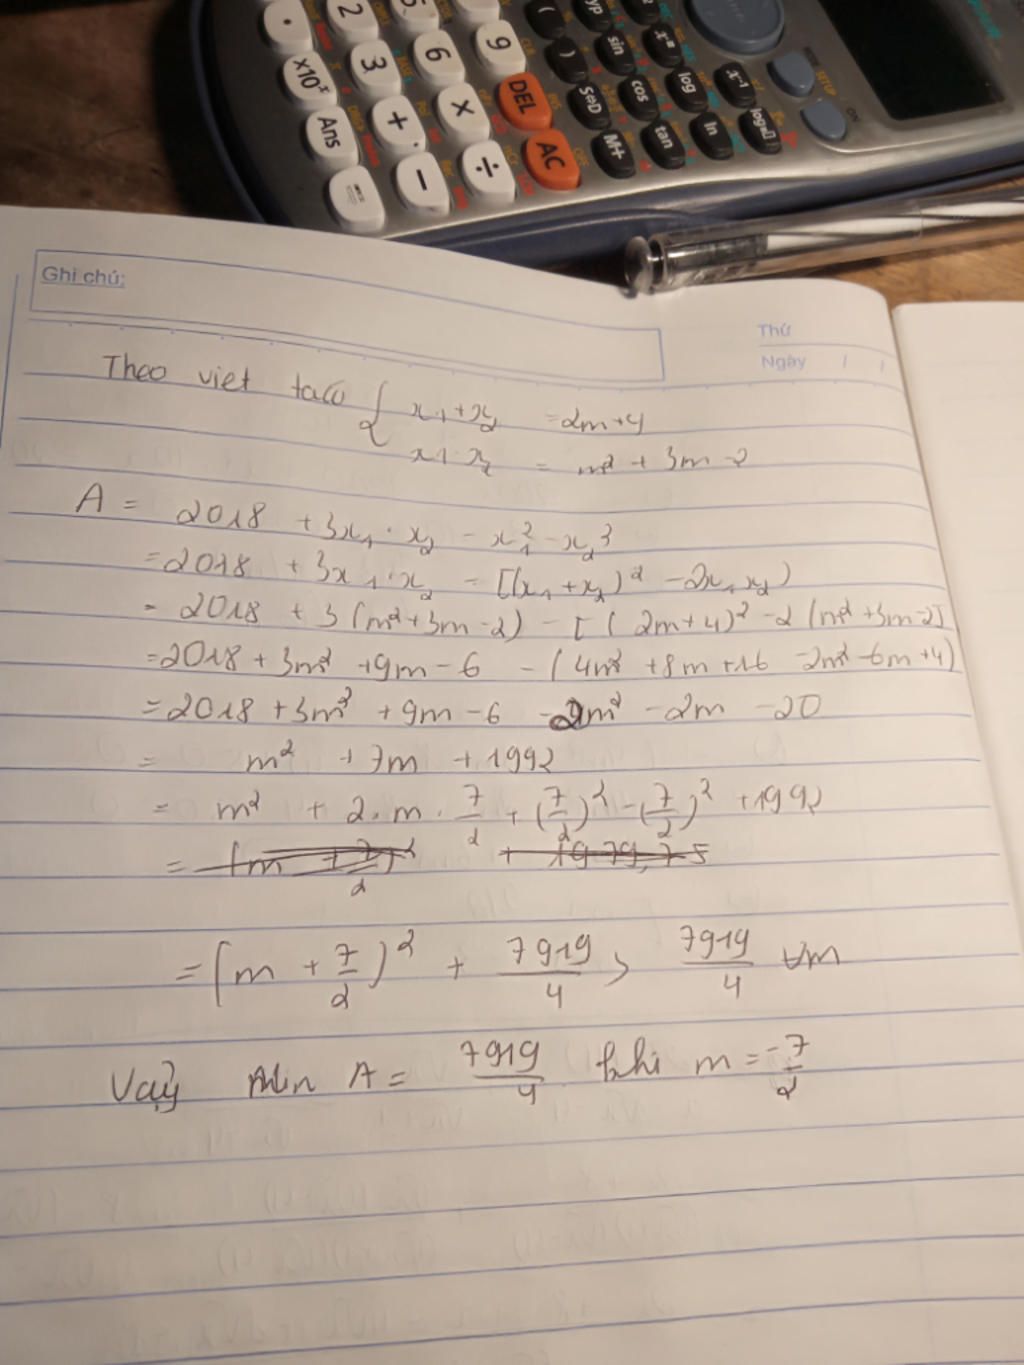 . 2 5 9 ( hyp
×10ˣ 3 6 DEL ) sin xⁿ
Ans + × AC S⇔D cos log x⁻¹ SETUP
= − ÷ M+ tan ln log ON
Ghi chú:
Thứ
Ngày / /
Theo viet ta có { x1 + x2 = 2m+4
x1 . x2 = m² + 3m - 2
A = 2018 + 3x₁ . x₂ - x₁² - x₂³
= 2018 + 3x₁.x₂ - [(x₁ + x₂)² - 2x₁x₂)
= 2018 + 3(m²+3m-2) - [(2m+4)² - 2(m²+3m-2]
= 2018 + 3m² + 9m - 6 - (4m² + 8m + 16 - 2m² - 6m + 4)
= 2018 + 3m² + 9m - 6 - 2m² - 2m - 20
= m² + 7m + 1992
= m² + 2.m.7/2 + (7/2)² - (7/2)² + 1992
= (m + 7/2)² + 1979,75
= (m + 7/2)² + 7919/4 > 7919/4 ∀m
Vậy Min A = 7919/4 khi m = -7/2